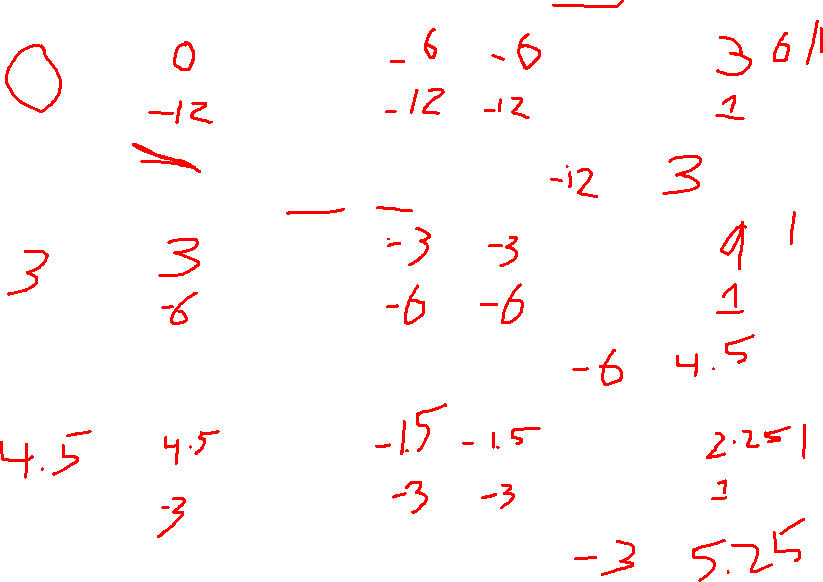 0 0 -6 -6 3 6/1
-12 -12 -12 1
-12 3
3 3 -3 -3 9 1
-6 -6 -6 1
-6 4.5
4.5 4.5 -1.5 -1.5 2.25 1
-3 -3 -3 1
-3 5.25